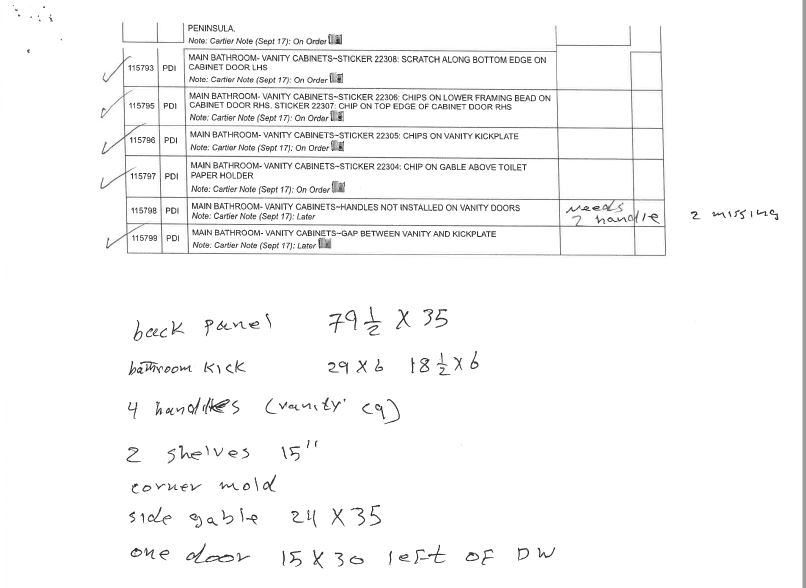 PENINSULA.
Note: Cartier Note (Sept 17): On Order
115793 PDI MAIN BATHROOM- VANITY CABINETS~STICKER 22308: SCRATCH ALONG BOTTOM EDGE ON
CABINET DOOR LHS
Note: Cartier Note (Sept 17): On Order
115795 PDI MAIN BATHROOM- VANITY CABINETS~STICKER 22306: CHIPS ON LOWER FRAMING BEAD ON
CABINET DOOR RHS. STICKER 22307: CHIP ON TOP EDGE OF CABINET DOOR RHS
Note: Cartier Note (Sept 17): On Order
115796 PDI MAIN BATHROOM- VANITY CABINETS~STICKER 22305: CHIPS ON VANITY KICKPLATE
Note: Cartier Note (Sept 17): On Order
115797 PDI MAIN BATHROOM- VANITY CABINETS~STICKER 22304: CHIP ON GABLE ABOVE TOILET
PAPER HOLDER
Note: Cartier Note (Sept 17): On Order
115798 PDI MAIN BATHROOM- VANITY CABINETS~HANDLES NOT INSTALLED ON VANITY DOORS needs
Note: Cartier Note (Sept 17): Later 2 handle 2 missing
115799 PDI MAIN BATHROOM- VANITY CABINETS~GAP BETWEEN VANITY AND KICKPLATE
Note: Cartier Note (Sept 17): Later
back panel 79 1/2 X 35
bathroom kick 29 X 6 18 1/2 X 6
4 handles (vanity
2 shelves 15"
corner mold
side gable 24 X 35
one door 15 X 30 left OF DW